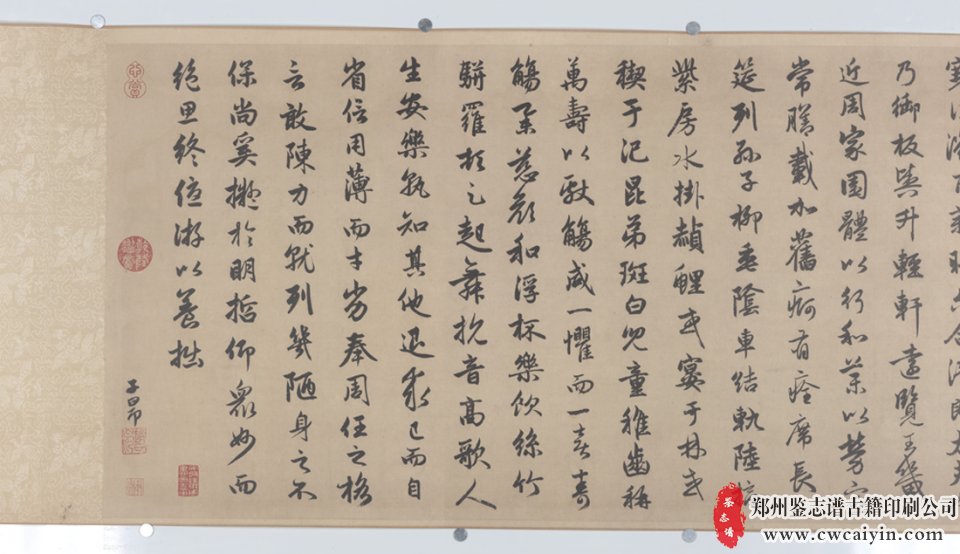 新晴六合清
乃御板輿升輕軒遠覽王畿
近周家園體以行和藥以勞宣
常膳載加舊痾有痊席長
筵列孫子柳垂陰車結軌陸
紫房水掛赬鯉或宴于林或
禊于汜昆弟斑白兒童稚齒稱
萬壽以獻觴咸一懼而一喜壽
觴舉慈顏和浮杯樂飲絲竹
駢羅頓足起舞抗音高歌人
生安樂孰知其他退求己而自
省信用薄而才劣奉周任之格
言敢陳力而就列幾陋身之不
保尚奚擬於明哲仰眾妙而
絕思終優游以養拙
子昂
鉴志谱
郑州鉴志谱古籍印刷公司
www.cwcaiyin.com